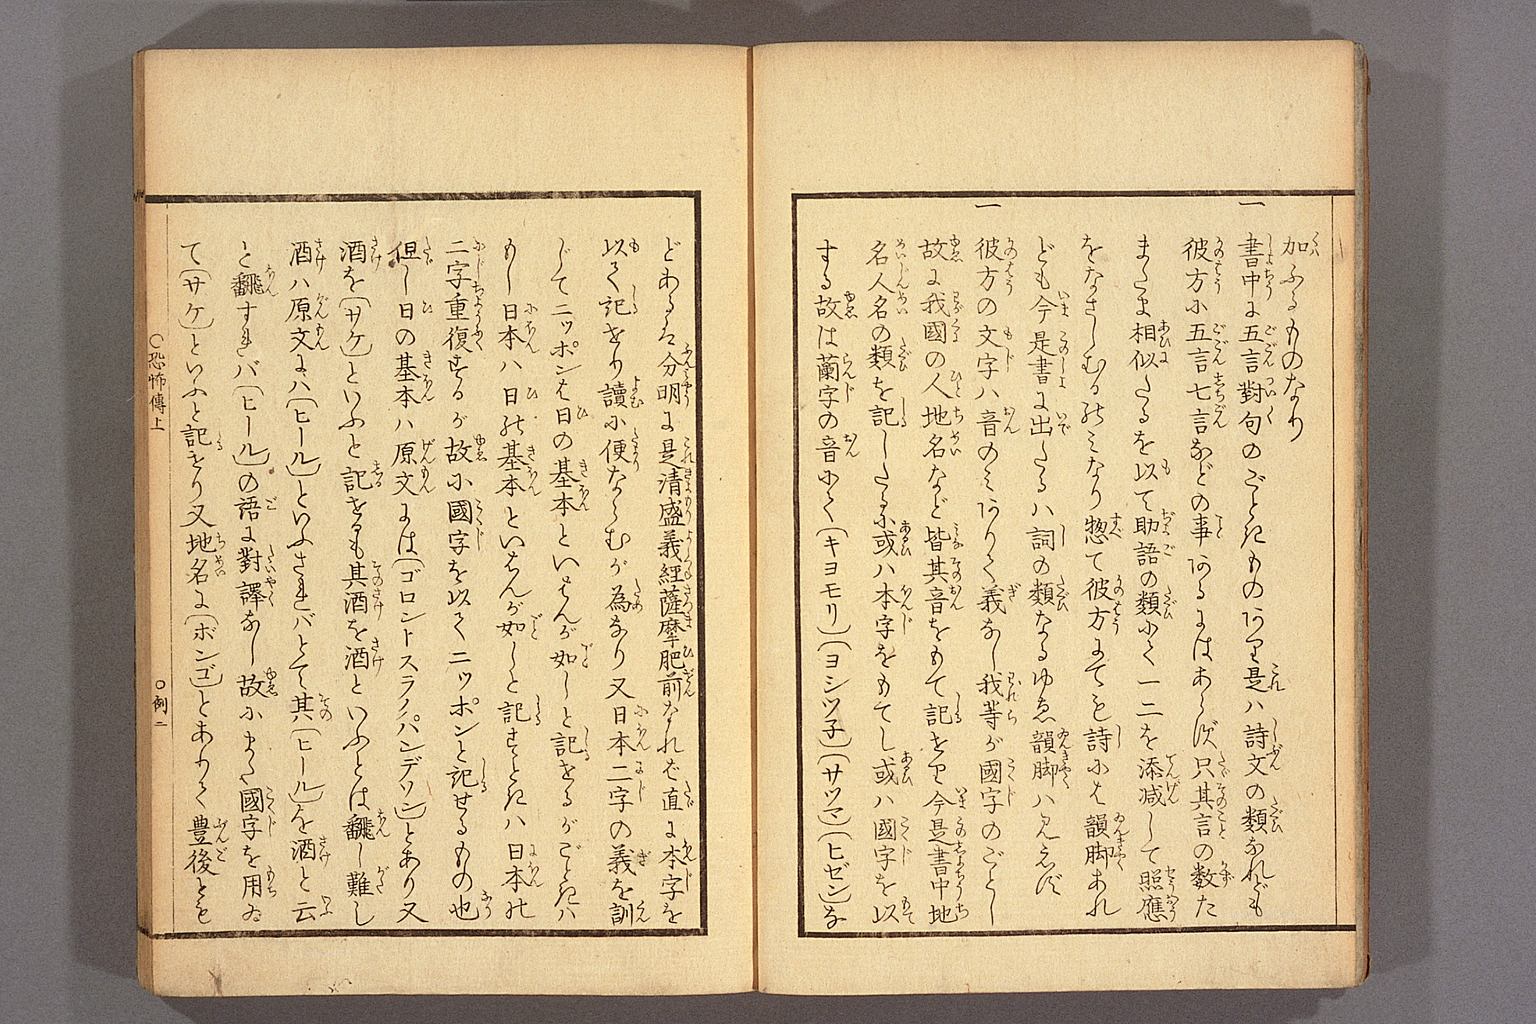 加ふるものなり
一 書中に五言對句のごときもの〔あり〕是ハ詩文の類なれども
彼方に五言七言などの事あるにはあらず只其言の数た
またま相似たるを以て助語の類にて一二を添減して照應
をなさしむるのみなり惣て彼方にても詩には韻脚あれ
ども今是書に出たるハ詞の類なるゆゑ韻脚ハ見えず
一 彼方の文字ハ音のみありて義なし我等が國字のごとし
故に我國の人地名など皆其音をもて記せり今是書中地
名人名の類を記したるに或ハ本字をもてし或ハ國字を以
する故は蘭字の音にて(キヨモリ)(ヨシツ子)(サツマ)(ヒゼン)な
どあるは分明に是清盛義経薩摩肥前なれば直に本字を
以て記せり讀に便ならむが為なり又日本二字の義を訓
じてニッポンは日の基本といはんが如しと記せるがごときハ
もし日本ハ日の基本といはんが如しと記すときハ日本の
二字重復するが故に國字を以てニッポンと記せるもの也
但し日の基本ハ原文には(ゴロントスラパンデソン)とあり又
酒を(サケ)といふと記せるも其酒を酒といふとは飜し難し
酒ハ原文にハ(ヒール)といふされバとて其(ヒール)を酒と云
と飜すれバ(ヒール)の語に對譯なし故にまた國字を用ゐ
て(サケ)といふと記せり又地名に(ボンゴ)とありて豊後とも
○恐怖傳上
○例二